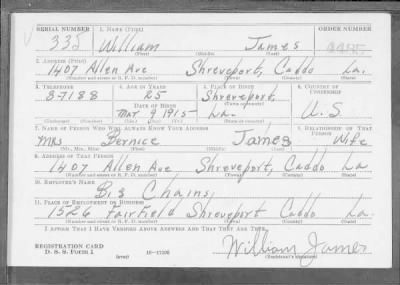 SERIAL NUMBER 1. NAME (Print) ORDER NUMBER
335 William James
(First) (Middle) (Last)
2. ADDRESS (Print)
1407 Allen Ave Shreveport, Caddo La.
(Number and street or R. F. D. number) (Town) (County) (State)
3. TELEPHONE 4. AGE IN YEARS 5. PLACE OF BIRTH 6. COUNTRY OF CITIZENSHIP
3-7188 25 Shreveport, U.S.
DATE OF BIRTH (Town or county)
May 9 1915 La.
(Mo.) (Day) (Yr.) (State or country)
7. NAME OF PERSON WHO WILL ALWAYS KNOW YOUR ADDRESS 8. RELATIONSHIP OF THAT PERSON
Mrs Bernice James Wife
(Mr., Mrs., Miss) (First) (Middle) (Last)
9. ADDRESS OF THAT PERSON
1407 Allen Ave Shreveport, Caddo La
(Number and street or R. F. D. number) (Town) (County) (State)
10. EMPLOYER'S NAME
Big Chains,
11. PLACE OF EMPLOYMENT OR BUSINESS
1526 Fairfield Shreveport Caddo La.
(Number and street or R. F. D. number) (Town) (County) (State)
I AFFIRM THAT I HAVE VERIFIED ABOVE ANSWERS AND THAT THEY ARE TRUE.
REGISTRATION CARD
D. S. S. Form 1 (over) 16—17105
William James
(Registrant's signature)